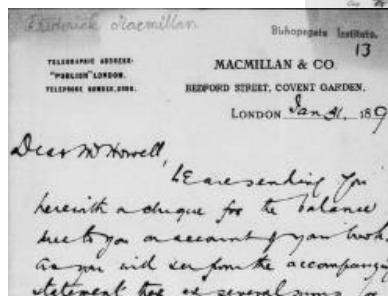 Frederick Macmillan
Bishopsgate Institute.
13
TELEGRAPHIC ADDRESS-
"PUBLISH" LONDON.
TELEPHONE NUMBER,
MACMILLAN & CO.
BEDFORD STREET, COVENT GARDEN.
LONDON Jan 31, 189
Dear Mr Howell,
We are sending you
herewith a cheque for the balance
due to you on account of your books
As you will see from the accompanying
statement there are several sums